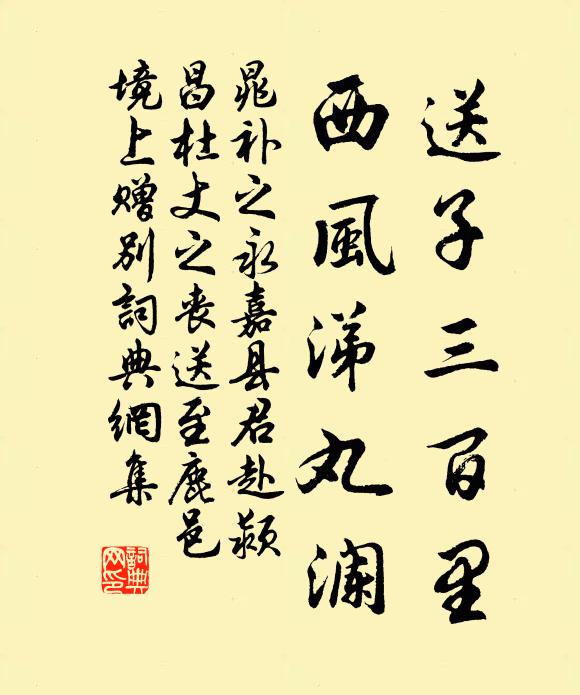 送子三百里
西風涕丸瀾
晁补之永嘉县君赴颍
昌杜丈之丧送至鹿邑
境上赠別詞典網集
詞典網印